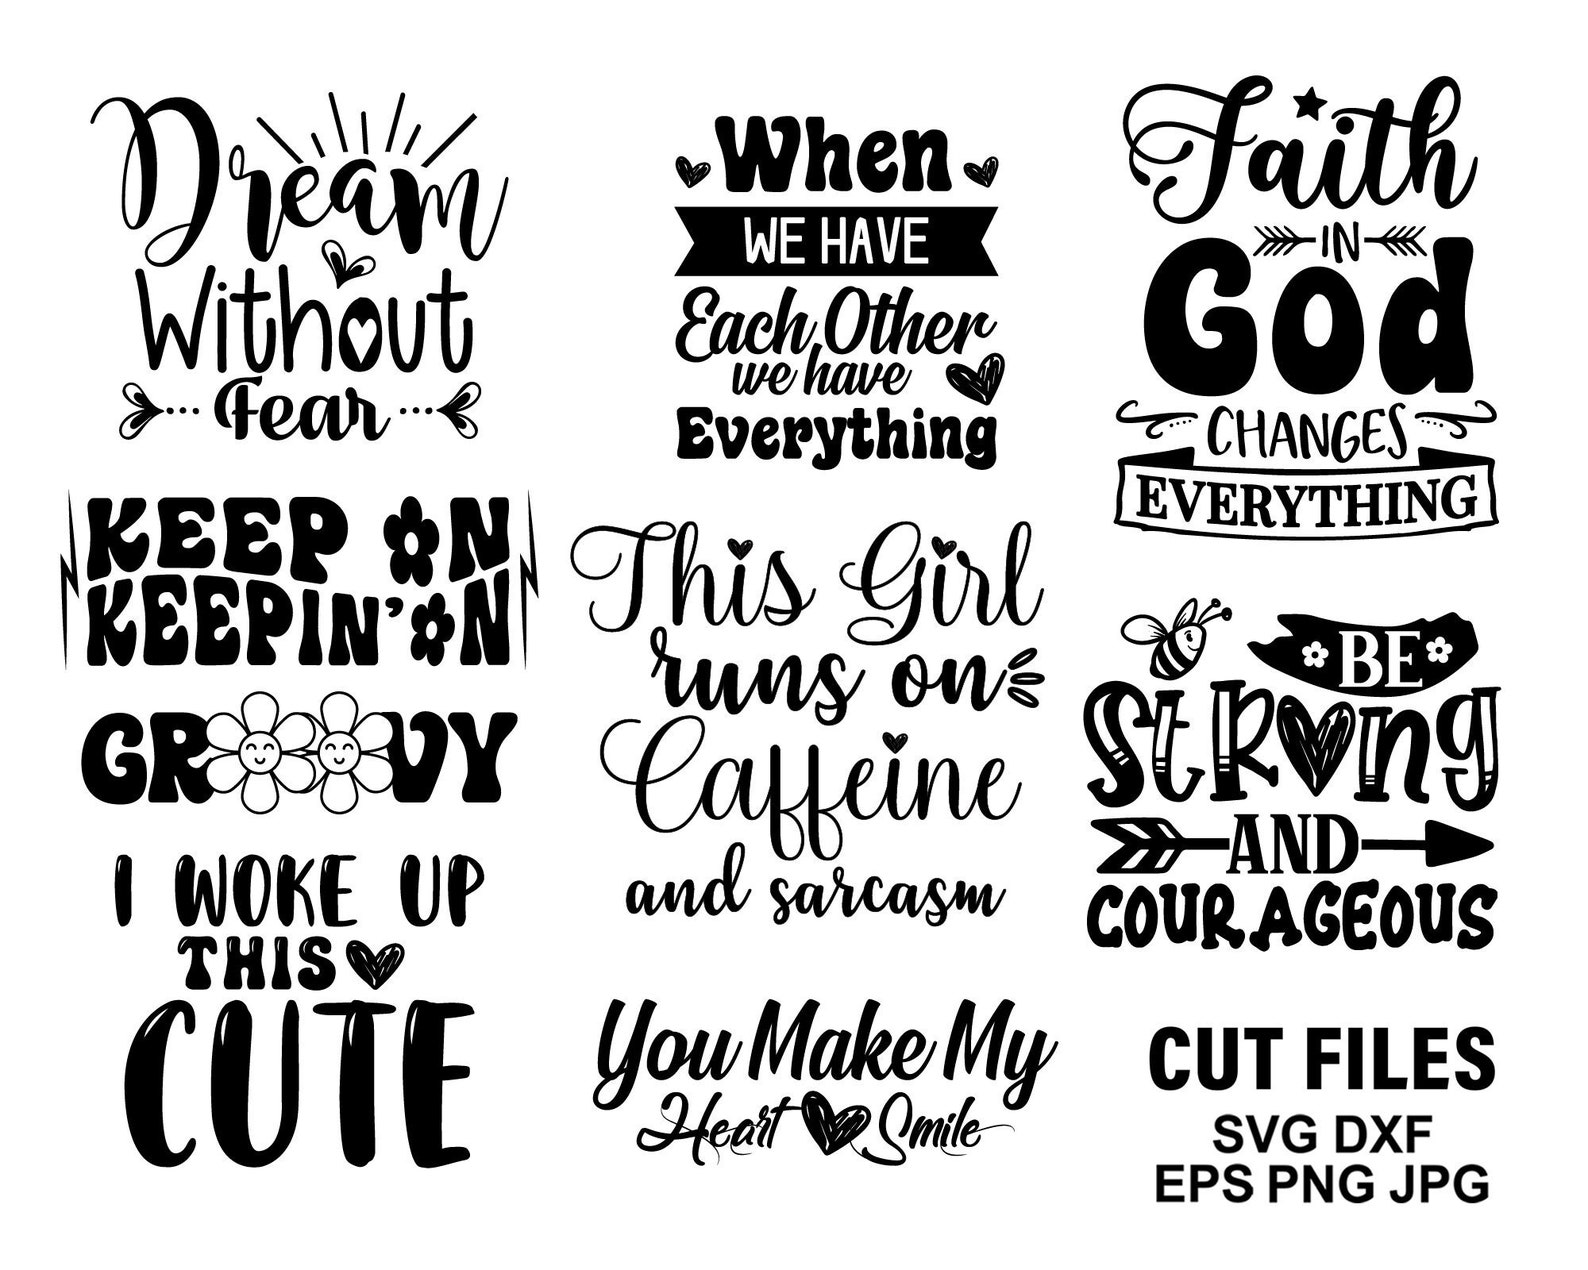 Dream
Without
Fear
KEEP ON
KEEPIN' ON
GROOVY
I WOKE UP
THIS
CUTE
When
WE HAVE
Each Other
we have
Everything
This Girl
runs on
Caffeine
and sarcasm
You Make My
Heart Smile
Faith
IN
God
CHANGES
EVERYTHING
BE
StRong
AND
COURAGEOUS
CUT FILES
SVG DXF
EPS PNG JPG